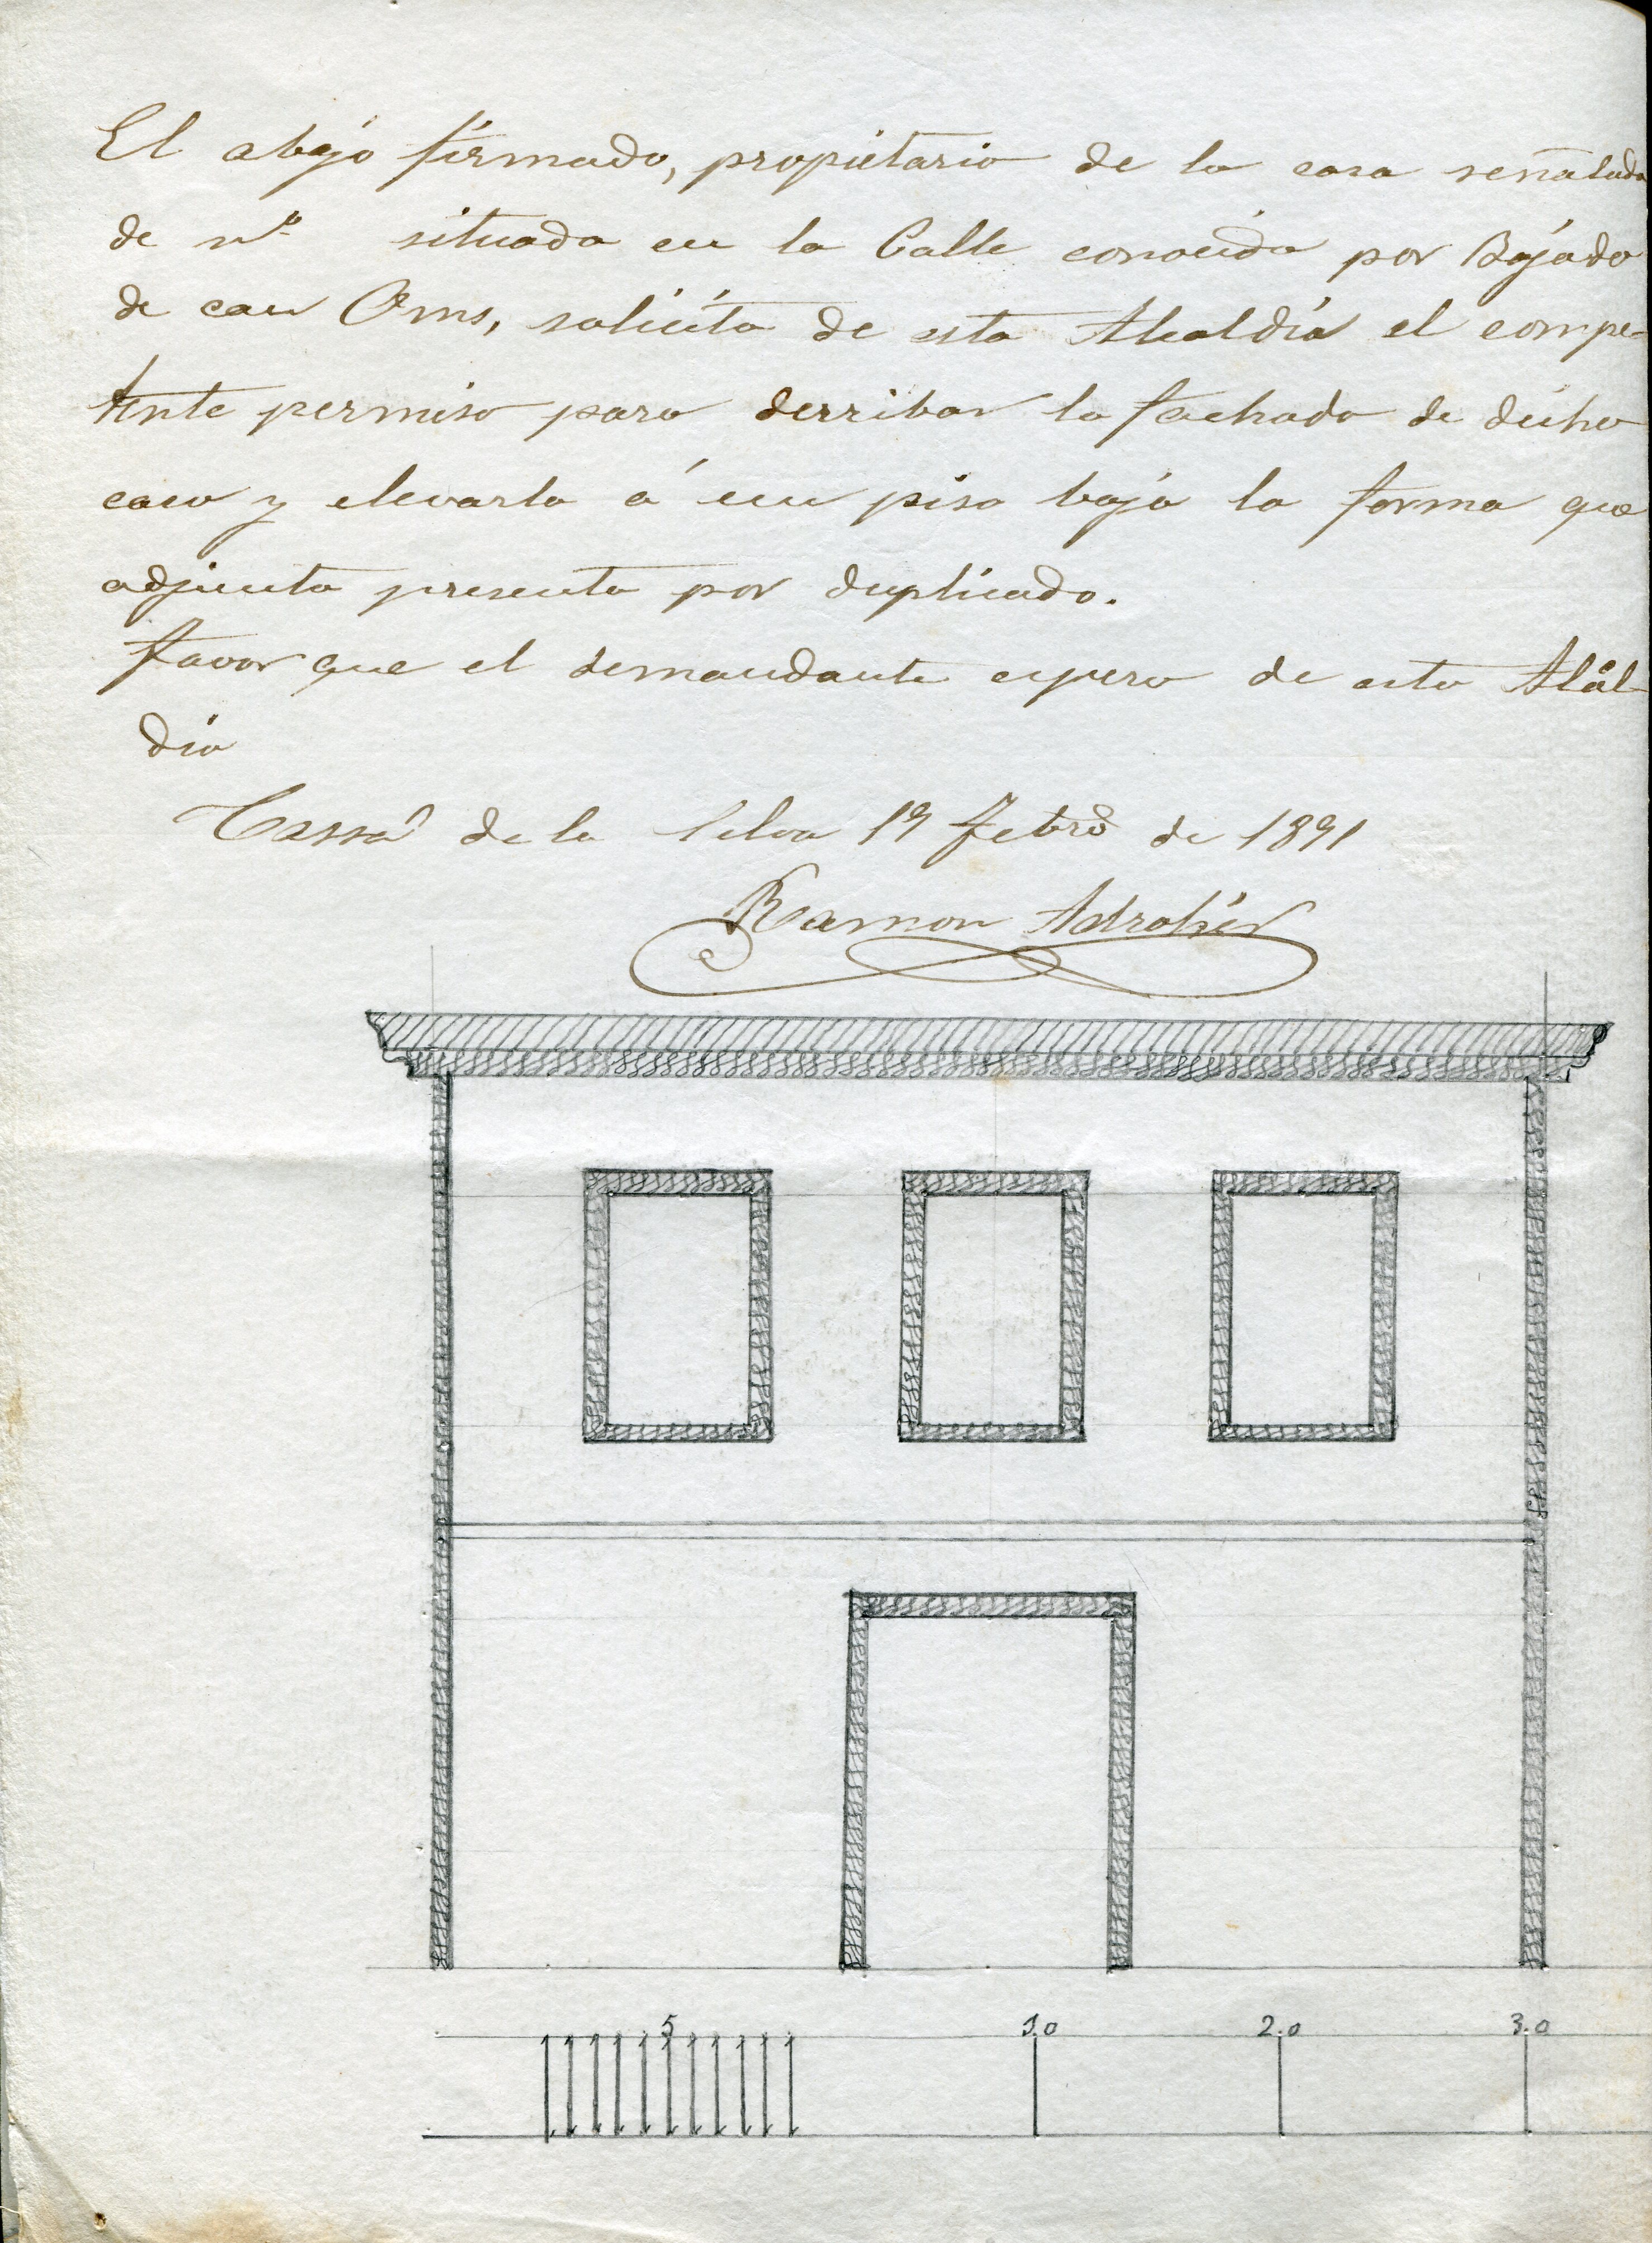 El abájo fírmado, propietario de la casa señalada
de nº situada en la Calle conocida por Bajada
de can Oms, solicita de esta Alcaldía el compe-
tente permiso para derribar la fachada de dicha
casa y elevarla á un piso bajo la forma que
adjunta presenta por duplicado.
Favor que el demandante espera de esta Alcal-
dia
Cassá de la Selva 19 Febrº de 1891
Ramon Adrohér
5 1.0 2.0 3.0